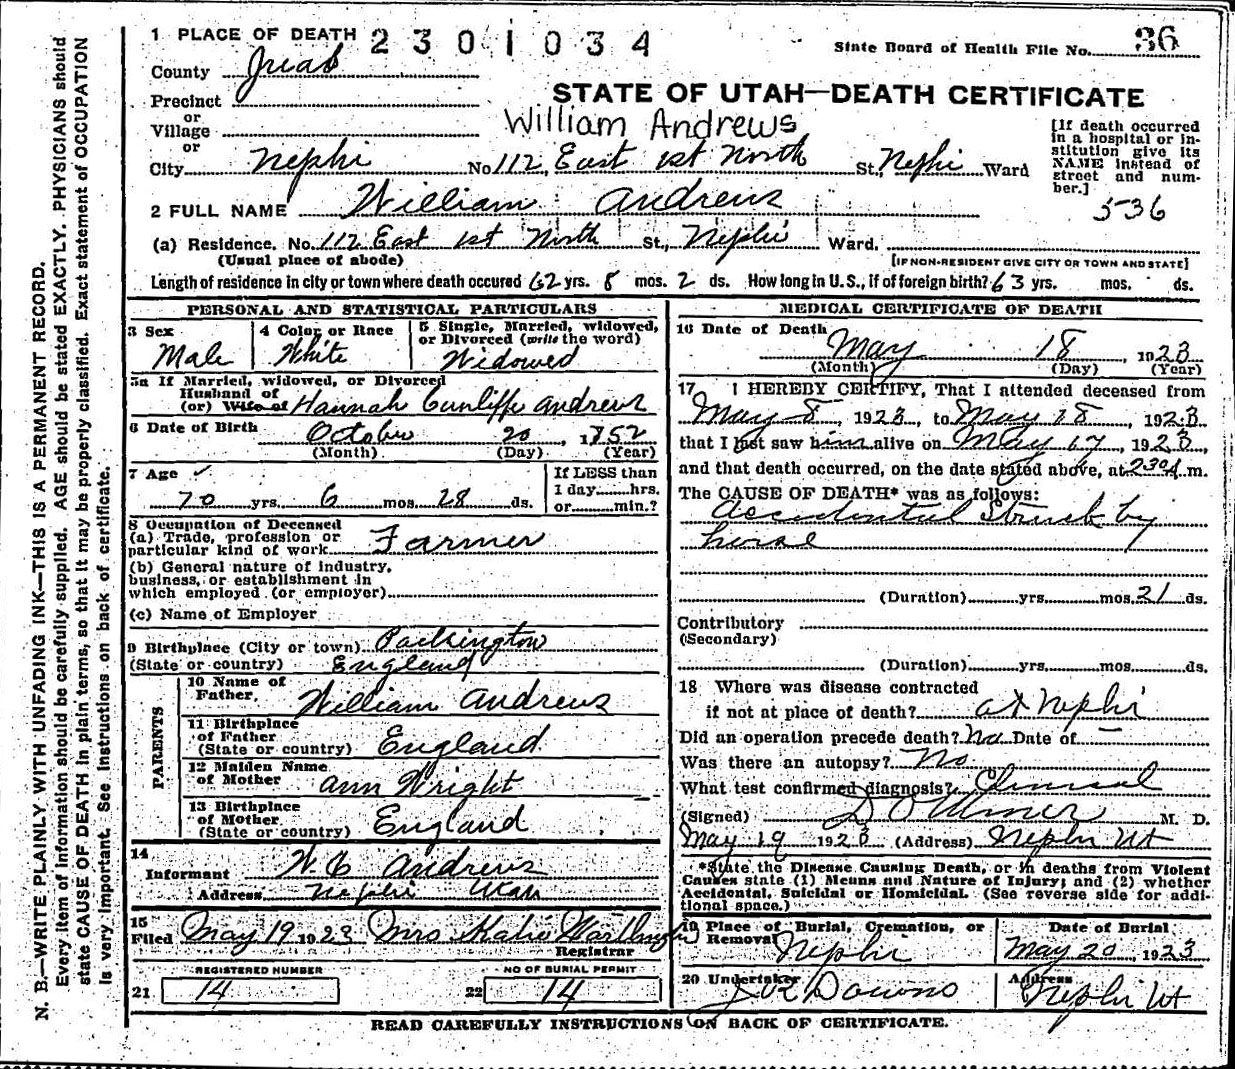 N. B.—WRITE PLAINLY WITH UNFADING INK—THIS IS A PERMANENT RECORD.
Every item of information should be carefully supplied. AGE should be stated EXACTLY. PHYSICIANS should
state CAUSE OF DEATH in plain terms, so that it may be properly classified. Exact statement of OCCUPATION
is very important. See instructions on back of certificate.
1 PLACE OF DEATH 2301034
State Board of Health File No. 36
County Juab
Precinct
or
Village
or
STATE OF UTAH—DEATH CERTIFICATE
William Andrews
City Nephi No 112 East 1st North St., Nephi Ward
[If death occurred
in a hospital or in-
stitution give its
NAME instead of
street and num-
ber.]
536
2 FULL NAME William Andrews
(a) Residence. No. 112 East 1st North St., Nephi Ward.
(Usual place of abode) [IF NON-RESIDENT GIVE CITY OR TOWN AND STATE]
Length of residence in city or town where death occured 62 yrs. 8 mos. 2 ds. How long in U.S., if of foreign birth? 63 yrs. mos. ds.
PERSONAL AND STATISTICAL PARTICULARS
3 Sex Male
4 Color or Race White
5 Single, Married, widowed,
or Divorced (write the word)
Widowed
5a If Married, widowed, or Divorced
Husband of
(or) Wife of Hannah Cunliffe Andrews
6 Date of Birth October 20, 1852
(Month) (Day) (Year)
7 Age
70 yrs. 6 mos. 28 ds.
If LESS than
1 day hrs.
or min.?
8 Occupation of Deceased
(a) Trade, profession or
particular kind of work Farmer
(b) General nature of industry,
business, or establishment in
which employed (or employer)
(c) Name of Employer
9 Birthplace (City or town) Packington
(State or country) England
PARENTS
10 Name of
Father, William Andrews
11 Birthplace
of Father
(State or country) England
12 Maiden Name
of Mother Ann Wright
13 Birthplace
of Mother
(State or country) England
14
Informant W. C Andrews
Address Nephi Utah
15
Filed May 19 1923 Mrs Katie
Registrar
REGISTERED NUMBER
21 14
NO OF BURIAL PERMIT
22 14
MEDICAL CERTIFICATE OF DEATH
16 Date of Death
May 18, 1923
(Month) (Day) (Year)
17 I HEREBY CERTIFY, That I attended deceased from
May 8, 1923, to May 18, 1923
that I last saw him alive on May 17, 1923,
and that death occurred, on the date stated above, at 230 A m.
The CAUSE OF DEATH* was as follows:
Accidental Struck by
horse
(Duration) yrs. mos. 21 ds.
Contributory
(Secondary)
(Duration) yrs. mos. ds.
18 Where was disease contracted
if not at place of death? at Nephi
Did an operation precede death? No Date of —
Was there an autopsy? No
What test confirmed diagnosis? Clinical
(Signed) M. D.
May 19 1923 (Address) Nephi Ut
*State the Disease Causing Death, or in deaths from Violent
Causes state (1) Means and Nature of Injury; and (2) whether
Accidental, Suicidal or Homicidal. (See reverse side for addi-
tional space.)
19 Place of Burial, Cremation, or
Removal Nephi
Date of Burial
May 20, 1923
20 Undertaker Downs
Address
Nephi Ut
READ CAREFULLY INSTRUCTIONS ON BACK OF CERTIFICATE.